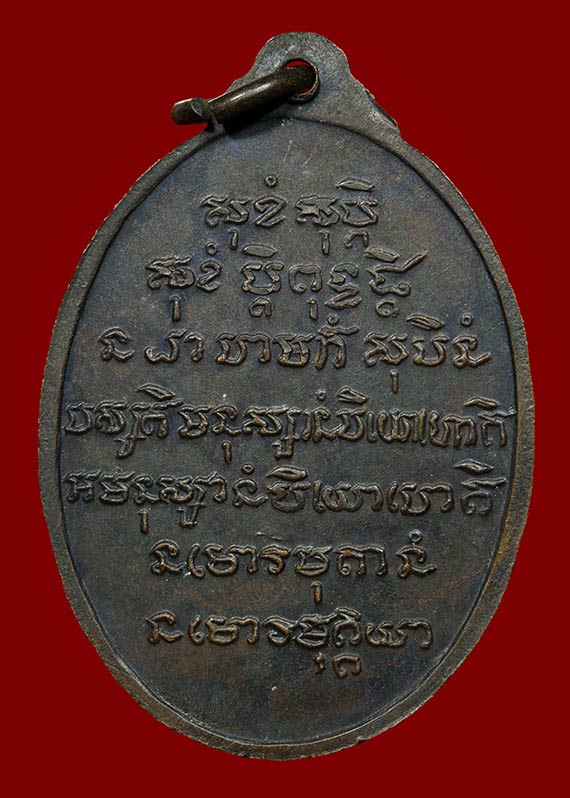 សុខំ សុប្តិ
សុខំ ប្តិពុជ្ឈ្តិ
ន បាបកំ សុបិនំ
បស្សតិមនុស្សានំបិយោហោតិ
អមនុស្សានំបិយោហោតិ
នមោវិមុតានំ
នមោវិមុត្តិយា